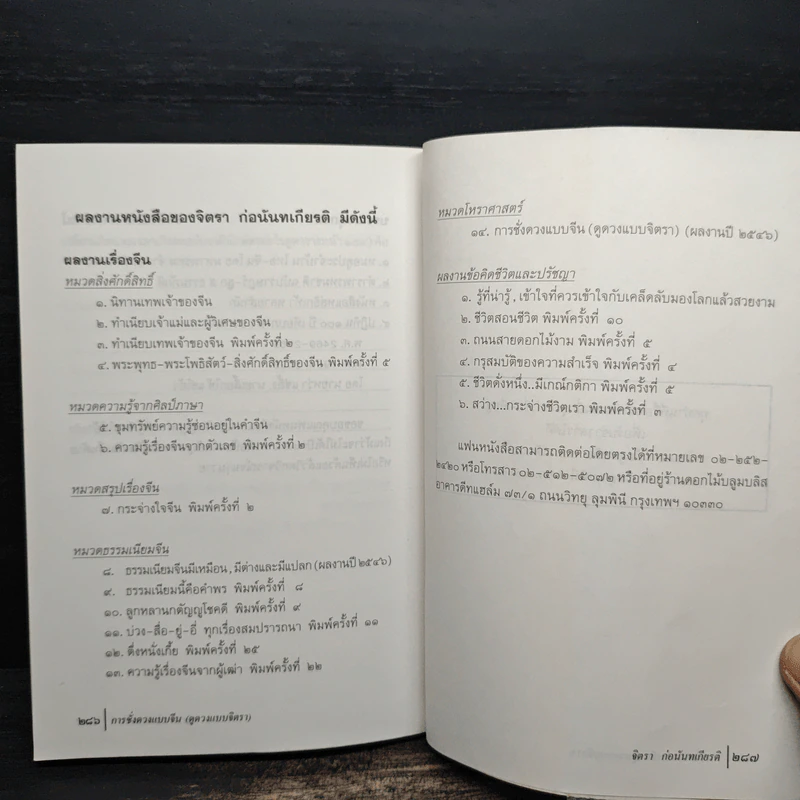 ผลงานหนังสือของจิตรา ก่อนันทเกียรติ มีดังนี้
ผลงานเรื่องจีน
หมวดสิ่งศักดิ์สิทธิ์
๑. นิทานเทพเจ้าของจีน
๒. ทำเนียบเจ้าแม่และผู้วิเศษของจีน
๓. ทำเนียบเทพเจ้าของจีน พิมพ์ครั้งที่ ๒
๔. พระพุทธ-พระโพธิสัตว์-สิ่งศักดิ์สิทธิ์ของจีน พิมพ์ครั้งที่ ๕
หมวดความรู้จากศิลป์ภาษา
๕. ขุมทรัพย์ความรู้ซ่อนอยู่ในคำจีน
๖. ความรู้เรื่องจีนจากตัวเลข พิมพ์ครั้งที่ ๒
หมวดสรุปเรื่องจีน
๗. กระจ่างใจจีน พิมพ์ครั้งที่ ๒
หมวดธรรมเนียมจีน
๘. ธรรมเนียมจีนมีเหมือน, มีต่างและมีแปลก (ผลงานปี ๒๕๔๖)
๙. ธรรมเนียมนี้คือคำพร พิมพ์ครั้งที่ ๘
๑๐. ลูกหลานกตัญญูโชคดี พิมพ์ครั้งที่ ๙
๑๑. บ่วง-สื่อ-ยู่-อี่ ทุกเรื่องสมปรารถนา พิมพ์ครั้งที่ ๑๑
๑๒. ตึ่งหนั่งเกี้ย พิมพ์ครั้งที่ ๒๕
๑๓. ความรู้เรื่องจีนจากผู้เฒ่า พิมพ์ครั้งที่ ๒๒
๒๘๖ | การชั่งดวงแบบจีน (ดูดวงแบบจิตรา)
หมวดโหราศาสตร์
๑๔. การชั่งดวงแบบจีน (ดูดวงแบบจิตรา) (ผลงานปี ๒๕๔๖)
ผลงานข้อคิดชีวิตและปรัชญา
๑. รู้ที่น่ารู้, เข้าใจที่ควรเข้าใจกับเคล็ดลับมองโลกแล้วสวยงาม
๒. ชีวิตสอนชีวิต พิมพ์ครั้งที่ ๑๐
๓. ถนนสายดอกไม้งาม พิมพ์ครั้งที่ ๕
๔. กรุสมบัติของความสำเร็จ พิมพ์ครั้งที่ ๔
๕. ชีวิตดั่งหนึ่ง..มีเกณ์กติกา พิมพ์ครั้งที่ ๕
๖. สว่าง...กระจ่างชีวิตเรา พิมพ์ครั้งที่ ๓
แฟนหนังสือสามารถติดต่อโดยตรงได้ที่หมายเลข ๐๒-๒๕๒-
๒๔๒๐ หรือโทรสาร ๐๒-๕๑๒-๕๐๗๒ หรือที่อยู่ร้านดอกไม้บลูมบลิส
อาคารดีทแฮล์ม ๗๓/๑ ถนนวิทยุ ลุมพินี กรุงเทพฯ ๑๐๓๓๐
จิตรา ก่อนันทเกียรติ | ๒๘๗